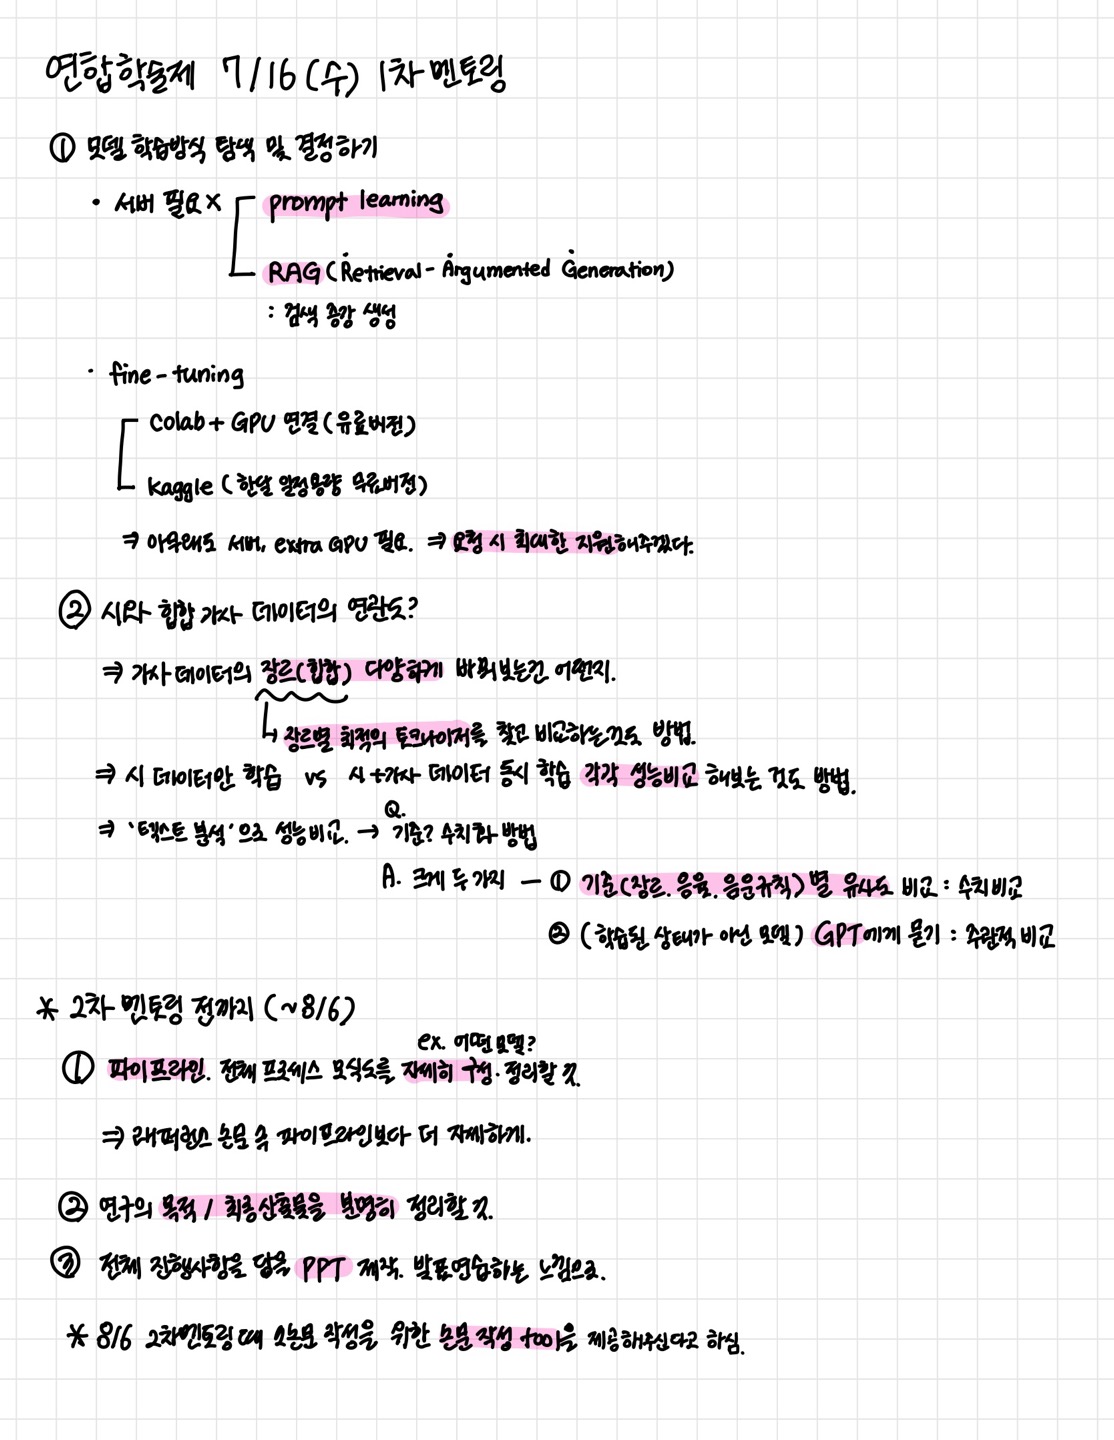 연합학술제 7/16(수) 1차 멘토링
① 모델 학습방식 탐색 및 결정하기
· 서버 필요X
prompt learning
RAG(Retrieval-Argumented Generation)
: 검색 증강 생성
· fine-tuning
Colab+ GPU 연결(유료버전)
kaggle (한달 일정용량 무료버전)
⇒ 아무래도 서버, extra GPU 필요. ⇒ 요청 시 최대한 지원해주겠다.
② 시와 힙합 가사 데이터의 연관도?
⇒ 가사 데이터의 장르(힙합) 다양하게 바꿔보는건 어떤지.
↳ 장르별 최적의 토크나이저를 찾고 비교하는것도 방법.
⇒ 시 데이터만 학습 vs 시+가사 데이터 동시 학습 각각 성능비교 해보는 것도 방법.
Q.
⇒ '텍스트 분석'으로 성능비교. → 기준? 수치화 방법
A. 크게 두가지 — ① 기준(장르. 음율. 음운규칙)별 유사도 비교 : 수치비교
② (학습된 상태가 아닌 모델) GPT에게 묻기 : 주관적 비교
* 2차 멘토링 전까지 (~8/6)
ex. 어떤모델?
① 파이프라인. 전체 프로세스 모식도를 자세히 구성·정리할 것.
⇒ 래퍼런스 논문 속 파이프라인보다 더 자세하게.
② 연구의 목적 / 최종산출물을 분명히 정리할 것.
③ 전체 진행사항을 담은 PPT 제작. 발표연습하는 느낌으로.
* 8/6 2차멘토링 때 소논문 작성을 위한 논문 작성 tool을 제공해주신다고 하심.